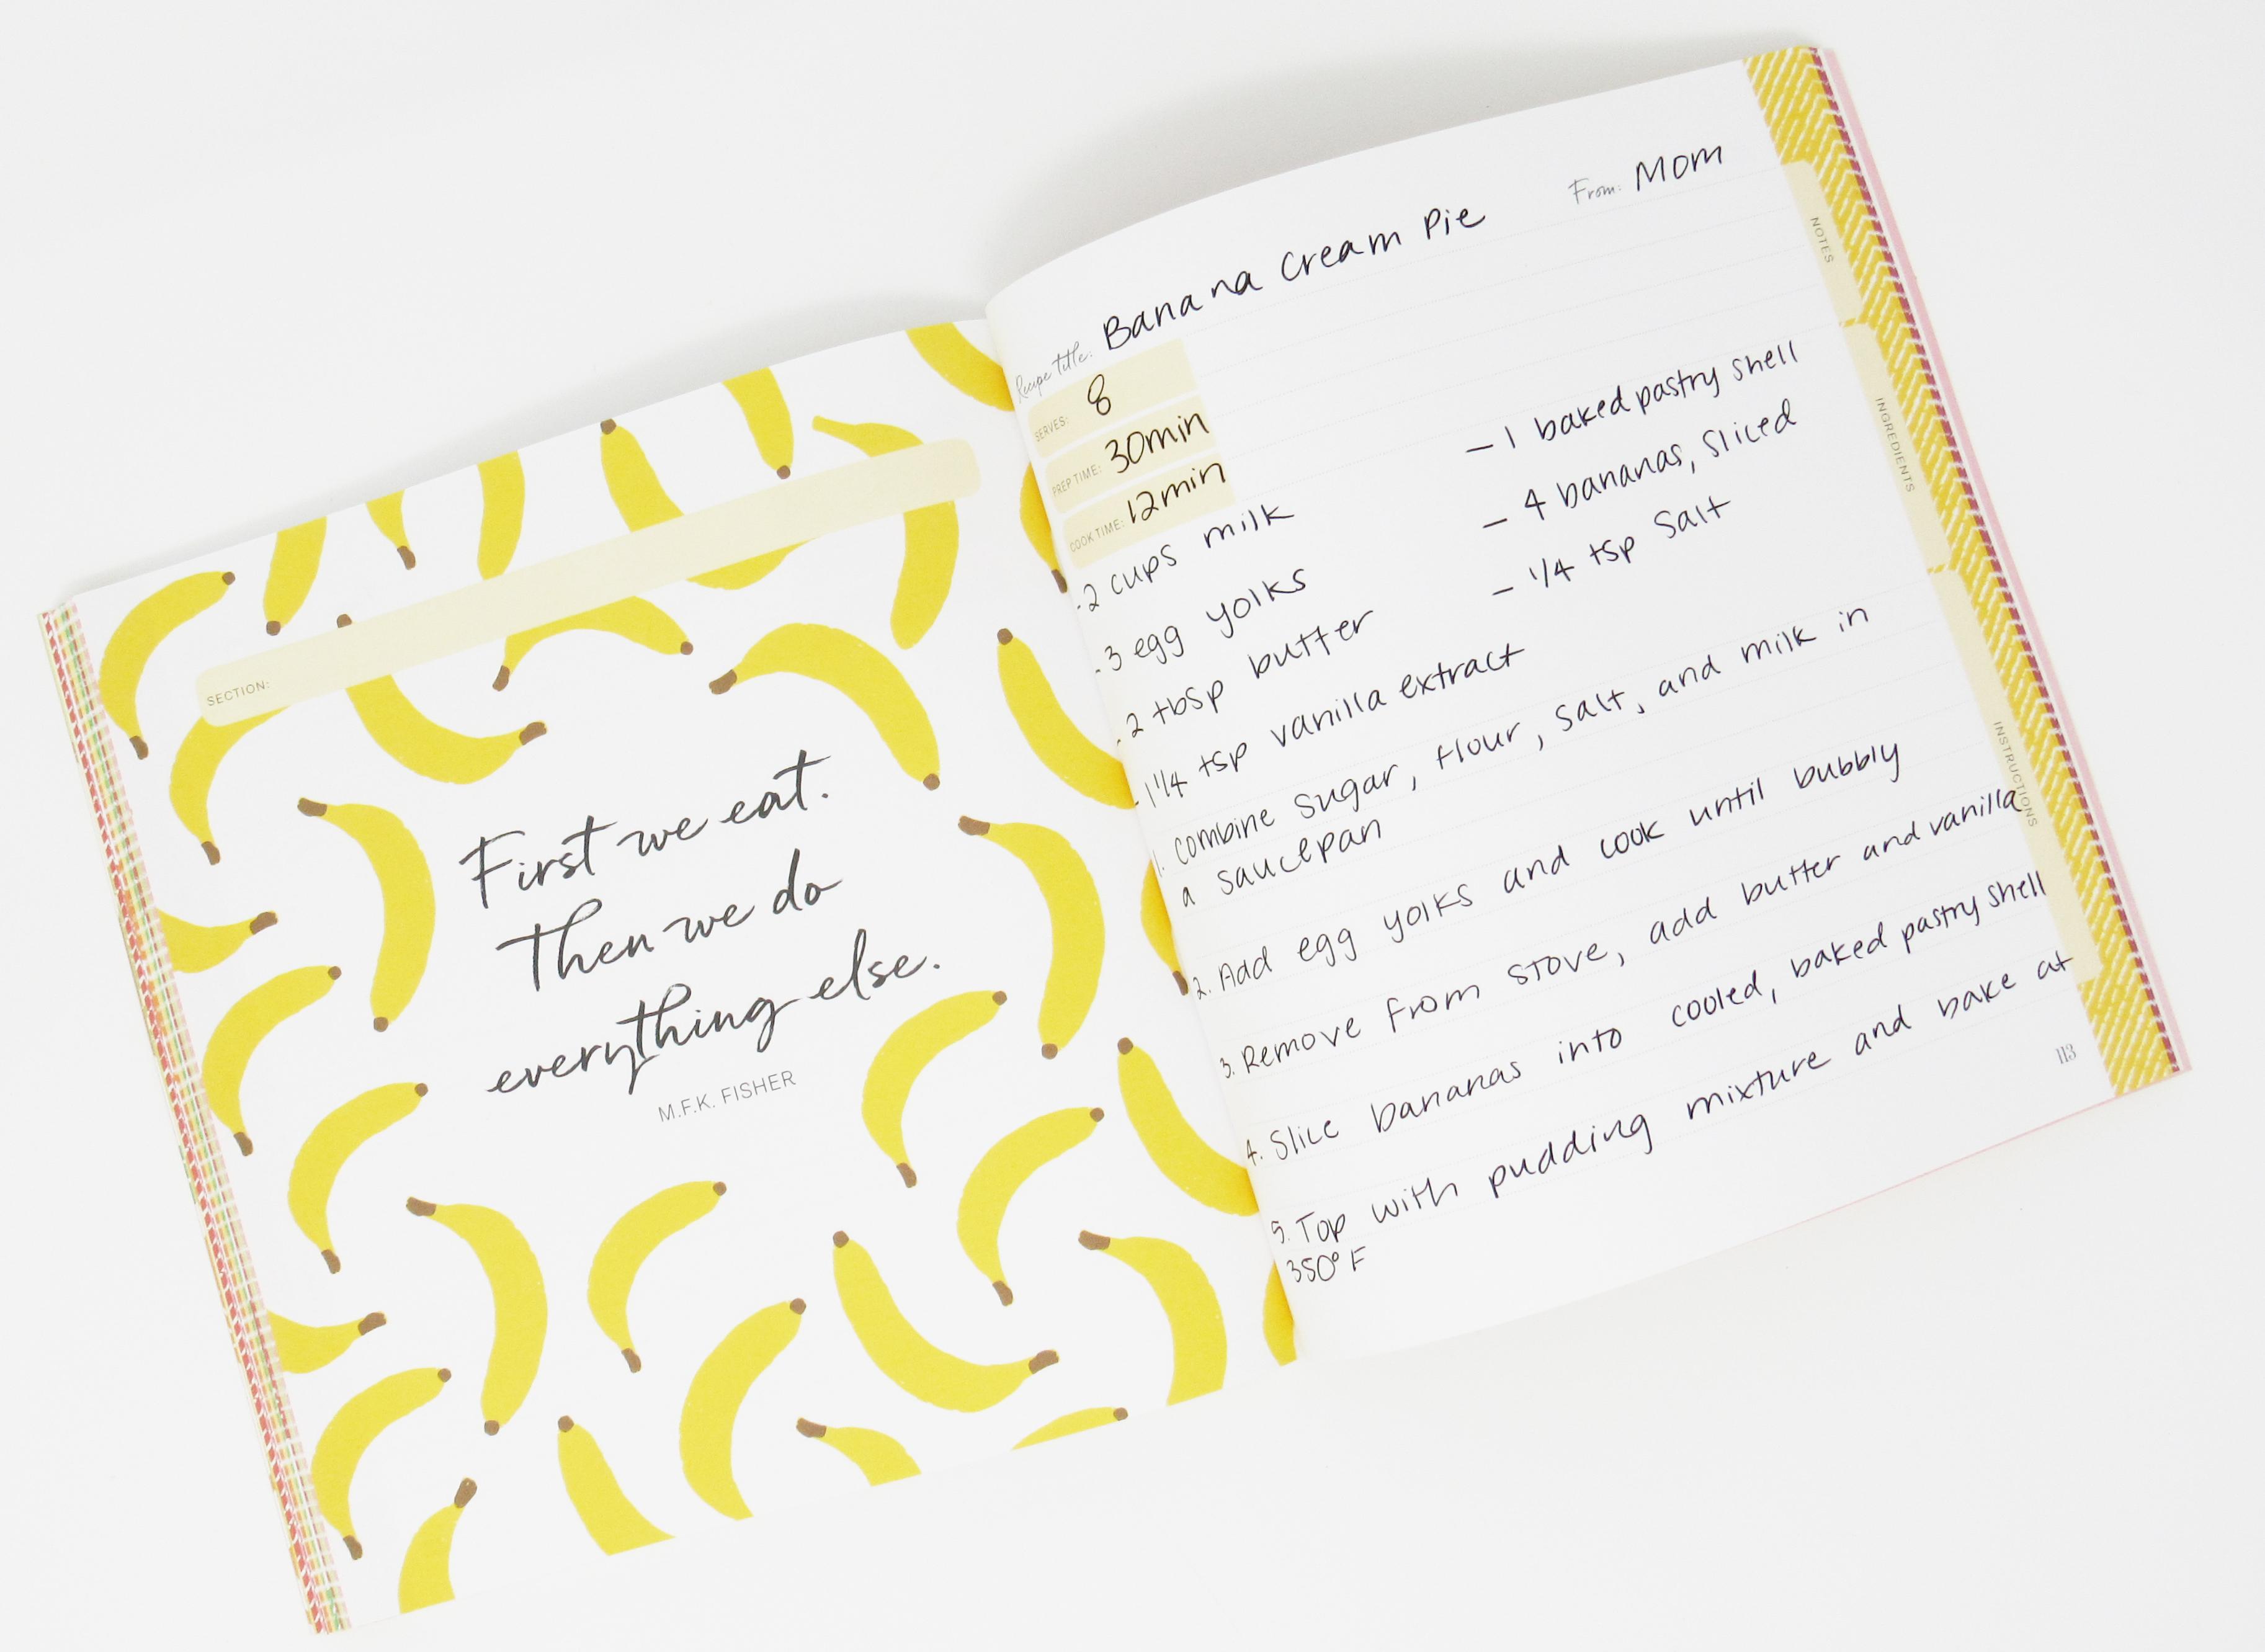 SECTION:
First we eat.
Then we do
everything else.
M.F.K. FISHER
From: Mom
Recipe Title: Banana Cream Pie
SERVES: 8
PREP TIME: 30min
COOK TIME: 12min
NOTES
INGREDIENTS
INSTRUCTIONS
-2 cups milk
-3 egg yolks
-2 tbsp butter
-1 1/4 tsp vanilla extract
- 1 baked pastry shell
- 4 bananas, sliced
- 1/4 tsp Salt
1. combine sugar, flour, salt, and milk in
a saucepan
2. Add egg yolks and cook until bubbly
3. Remove from stove, add butter and vanilla
4. Slice bananas into cooled, baked pastry shell
5. Top with pudding mixture and bake at
350° F
113